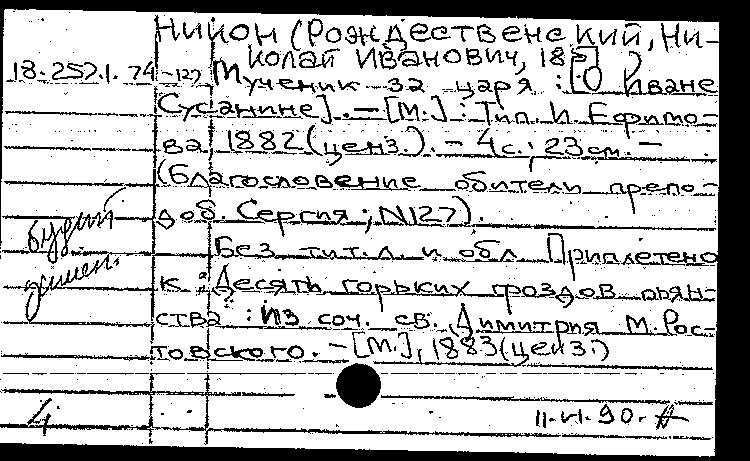 Никон (Рождественский, Ни-
колай Иванович, 185 )
18.257.1.74-127 Мученик за царя : [О Иване
Сусанине]. — [М.] : Тип. И Ефимо-
ва, 1882 (ценз.). – 4с.; 23см. —
(Благословение обители препо-
доб. Сергия; N127).
Без тит. л. и обл. Приплетено
к : Десять горьких гроздов пьян-
ства : Из соч. св. Димитрия м. Рос-
товского. — [М.], 1883 (ценз.)
4 11.VI.90.